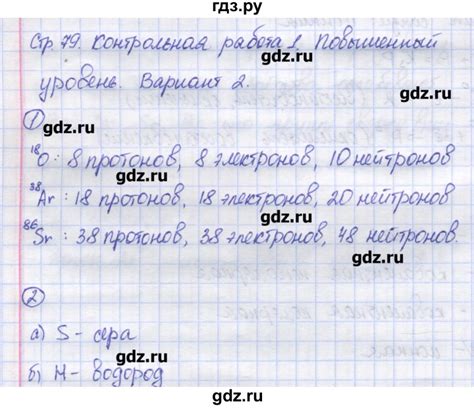 гдз.ру
Стр 79. Контрольная работа 1. Повышенный
уровень. Вариант 2.
gdz.ru
gdz.ru
①
gdz.ru
gdz.ru
¹⁸O : 8 протонов, 8 электронов, 10 нейтронов
gdz.ru
³⁸Ar : 18 протонов, 18 электронов, 20 нейтронов
⁸⁶Sr : 38 протонов, 38 электронов, 48 нейтронов.
gdz.ru
gdz.ru
②
gdz.ru
а) S - сера
б) H - водород
gdz.ru
gdz.ru